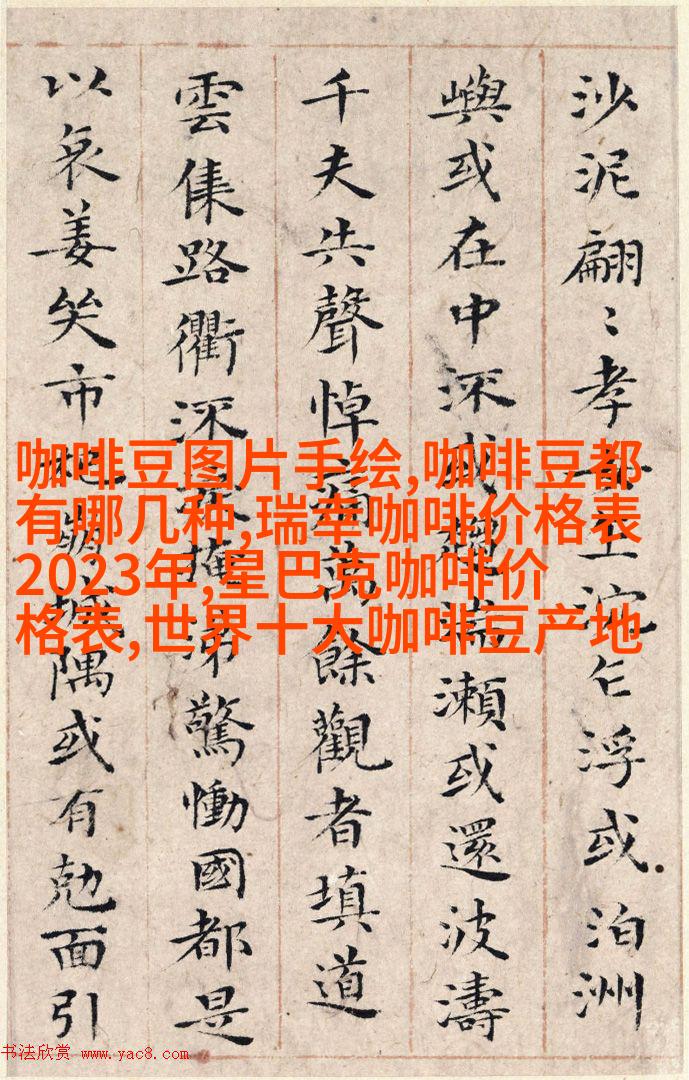 沙泥翩〻孝女沉乍浮或泊洲
嶼或在中深或趨湍瀨或還波濤
千夫共聲悼痛萬餘觀者填道
雲集路衢深掩涕驚慟國都是
以哀姜哭市杞崩城隅或有勊面引
咖啡豆图片手绘,咖啡豆都
有哪几种,瑞幸咖啡价格表
2023年,星巴克咖啡价
格表,世界十大咖啡豆产地
书法欣赏 www.yac8.com